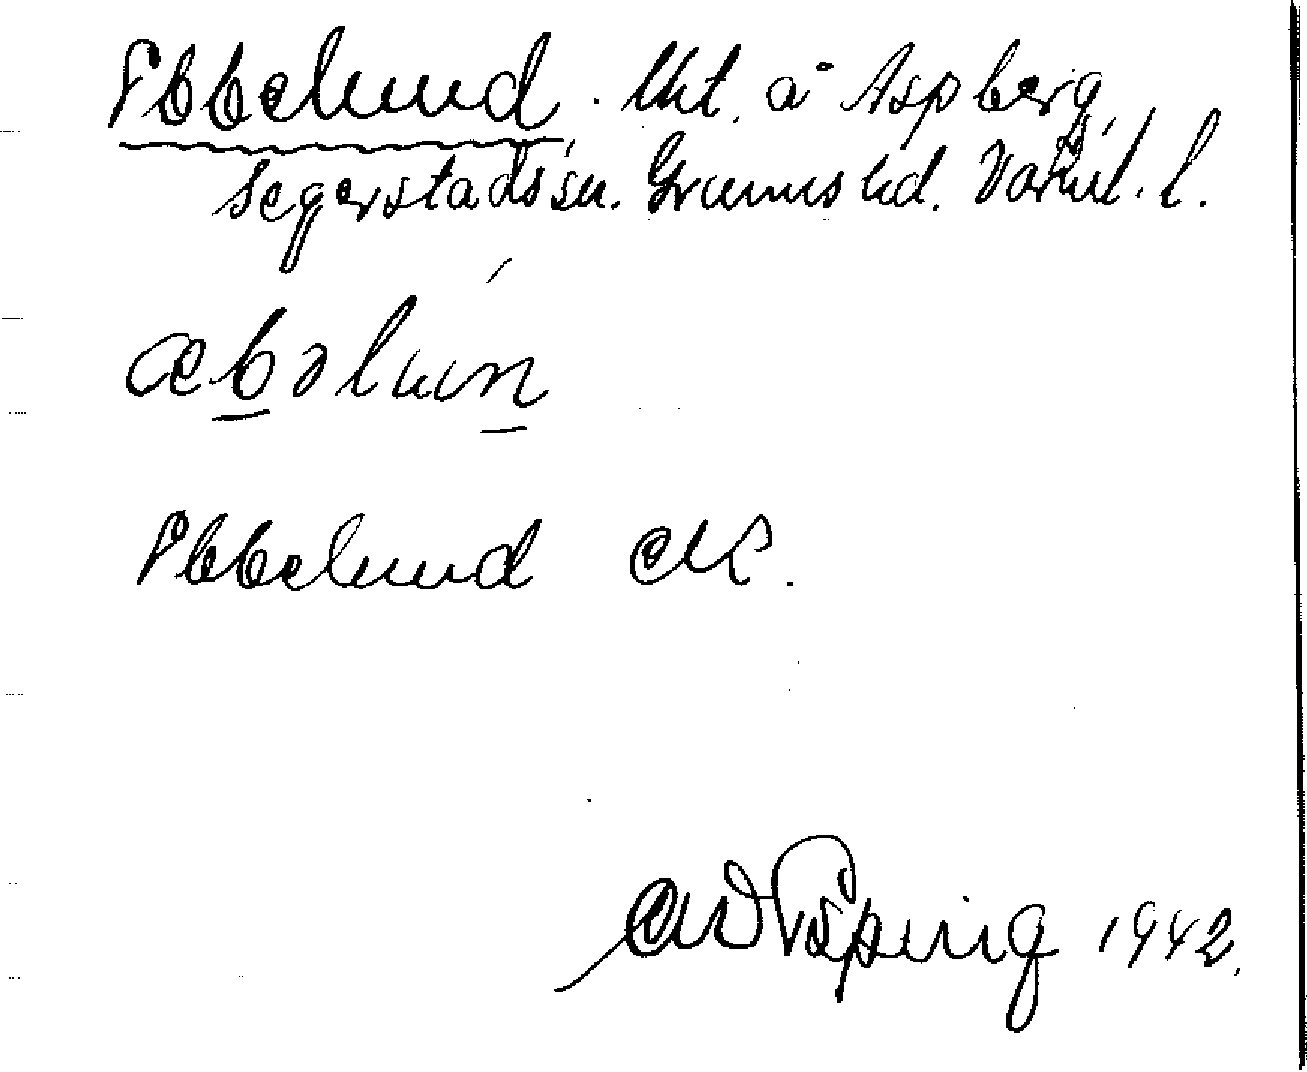 Ebbelund. Utt. å Aspberg,
Segerstads sn. Grums hd. Värml. l.
æbəlun
Ebbelund
1942.